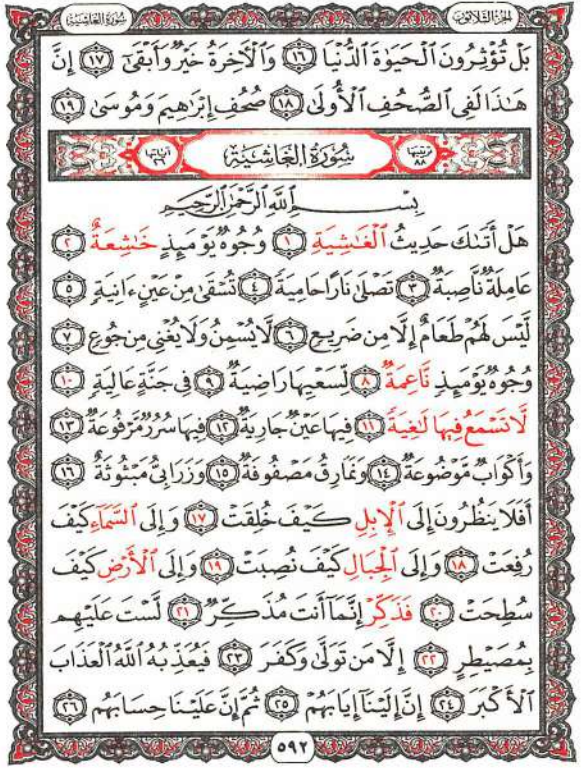 سُورَةُ الغَاشِيَةِ الجُزْءُ الثَّلَاثُونَ
بَلْ تُؤْثِرُونَ ٱلْحَيَوٰةَ ٱلدُّنْيَا ١٦ وَٱلْأَخِرَةُ خَيْرٌ وَأَبْقَىٰٓ ١٧ إِنَّ
هَـٰذَا لَفِى ٱلصُّحُفِ ٱلْأُولَىٰ ١٨ صُحُفِ إِبْرَٰهِيمَ وَمُوسَىٰ ١٩
ترتيبها ٨٨ سُورَةُ الغَاشِيَةِ آياتها ٢٦
بِسْمِ ٱللَّهِ ٱلرَّحْمَٰنِ ٱلرَّحِيمِ
هَلْ أَتَىٰكَ حَدِيثُ ٱلْغَٰشِيَةِ ١ وُجُوهٌ يَوْمَئِذٍ خَٰشِعَةٌ ٢
عَامِلَةٌ نَّاصِبَةٌ ٣ تَصْلَىٰ نَارًا حَامِيَةً ٤ تُسْقَىٰ مِنْ عَيْنٍ ءَانِيَةٍ ٥
لَّيْسَ لَهُمْ طَعَامٌ إِلَّا مِن ضَرِيعٍ ٦ لَّا يُسْمِنُ وَلَا يُغْنِى مِن جُوعٍ ٧
وُجُوهٌ يَوْمَئِذٍ نَّاعِمَةٌ ٨ لِّسَعْيِهَا رَاضِيَةٌ ٩ فِى جَنَّةٍ عَالِيَةٍ ١٠
لَّا تَسْمَعُ فِيهَا لَٰغِيَةً ١١ فِيهَا عَيْنٌ جَارِيَةٌ ١٢ فِيهَا سُرُرٌ مَّرْفُوعَةٌ ١٣
وَأَكْوَابٌ مَّوْضُوعَةٌ ١٤ وَنَمَارِقُ مَصْفُوفَةٌ ١٥ وَزَرَابِىُّ مَبْثُوثَةٌ ١٦
أَفَلَا يَنظُرُونَ إِلَى ٱلْإِبِلِ كَيْفَ خُلِقَتْ ١٧ وَإِلَى ٱلسَّمَآءِ كَيْفَ
رُفِعَتْ ١٨ وَإِلَى ٱلْجِبَالِ كَيْفَ نُصِبَتْ ١٩ وَإِلَى ٱلْأَرْضِ كَيْفَ
سُطِحَتْ ٢٠ فَذَكِّرْ إِنَّمَآ أَنتَ مُذَكِّرٌ ٢١ لَّسْتَ عَلَيْهِم
بِمُصَيْطِرٍ ٢٢ إِلَّا مَن تَوَلَّىٰ وَكَفَرَ ٢٣ فَيُعَذِّبُهُ ٱللَّهُ ٱلْعَذَابَ
ٱلْأَكْبَرَ ٢٤ إِنَّ إِلَيْنَآ إِيَابَهُمْ ٢٥ ثُمَّ إِنَّ عَلَيْنَا حِسَابَهُم ٢٦
٥٩٢